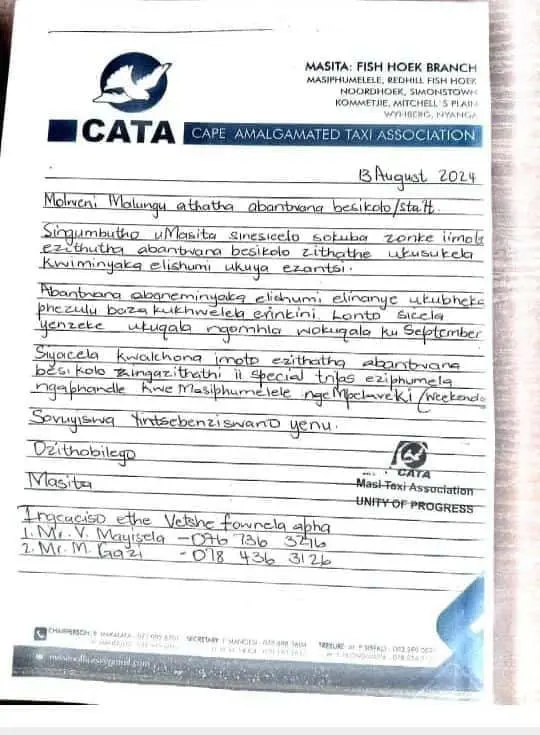 MASITA: FISH HOEK BRANCH
MASIPHUMELELE, REDHILL FISH HOEK
NOORDHOEK, SIMONSTOWN
KOMMETJIE, MITCHELL'S PLAIN
WYNBERG, NYANGA
CATA CAPE AMALGAMATED TAXI ASSOCIATION
13 August 2024
Molweni Malungu athatha abantwana besikolo/staff.
Singumbutho uMasita sinesicelo sokuba zonke iimoto
ezithutha abantwana besikolo zithathe ukusukela
kwiminyaka elishumi ukuya ezantsi.
Abantwana abaneminyaka elishumi elinanye ukubheka
phezulu baza kukhwelela erinkini Lonto sicela
yenzeke ukuqala ngomhla wokuqala ku September
Siyacela kwalchona imoto ezithatha abantwana
besikolo zingazithathi ii special trips eziphumela
ngaphandle kwe Masiphumelele nge Mpelaveki/weekends
Sovuyiswa yintsebenziswano yenu.
Ozithobileyo
Masita
CATA
Masi Taxi Association
UNITY OF PROGRESS
Ingcaciso ethe Vetshe fownela apha
1. Mr. V. Mayisela - 076 736 3216
2. Mr. M. Gazi - 078 436 3126
CHAIRPERSON:
SECRETARY: